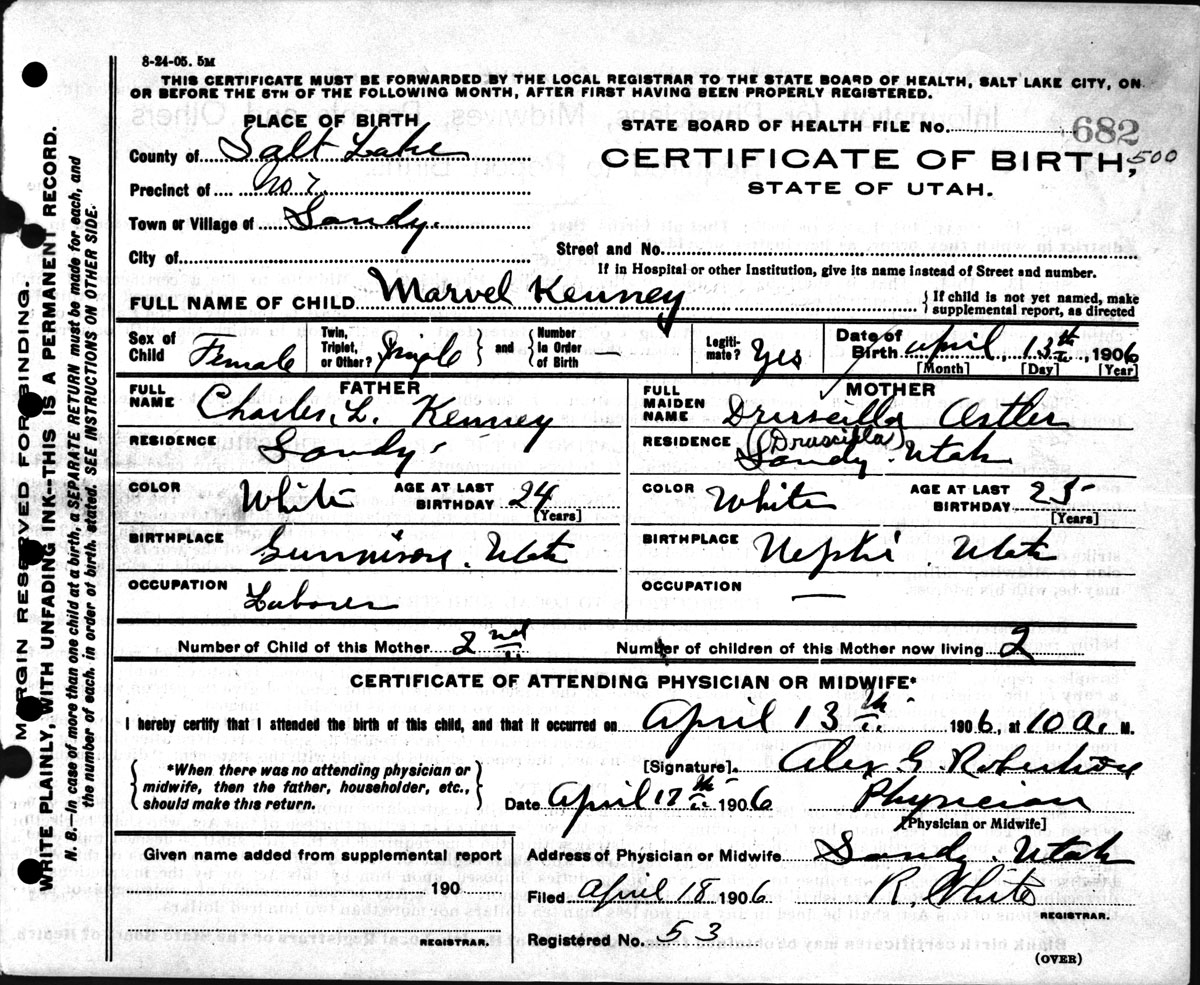 8-24-05. 5M
THIS CERTIFICATE MUST BE FORWARDED BY THE LOCAL REGISTRAR TO THE STATE BOARD OF HEALTH, SALT LAKE CITY, ON
OR BEFORE THE 5TH OF THE FOLLOWING MONTH, AFTER FIRST HAVING BEEN PROPERLY REGISTERED.
MARGIN RESERVED FOR BINDING.
WRITE PLAINLY, WITH UNFADING INK--THIS IS A PERMANENT RECORD.
N. B.--In case of more than one child at a birth, a SEPARATE RETURN must be made for each, and
the number of each. in order of birth. stated. SEE INSTRUCTIONS ON OTHER SIDE.
PLACE OF BIRTH
County of Salt Lake
Precinct of No 7.
Town or Village of Sandy.
City of
STATE BOARD OF HEALTH FILE No. 682
CERTIFICATE OF BIRTH, 500
STATE OF UTAH.
Street and No.
If in Hospital or other Institution, give its name instead of Street and number.
FULL NAME OF CHILD Marvel Kenney { If child is not yet named, make
supplemental report, as directed
Sex of Child Female
Twin, Triplet, or Other? Single } and { Number In Order of Birth —
Legiti-mate? Yes
Date of Birth April, 13th, 1906
[Month] [Day] [Year]
FATHER
FULL NAME Charles. L. Kenney
RESIDENCE Sandy
COLOR White AGE AT LAST BIRTHDAY 24
[Years]
BIRTHPLACE Gunnison. Utah
OCCUPATION Laborer
MOTHER
FULL MAIDEN NAME Drusscilla Ostler
(Drusscilla)
RESIDENCE Sandy. Utah
COLOR White AGE AT LAST BIRTHDAY 25
[Years]
BIRTHPLACE Nephi. Utah
OCCUPATION —
Number of Child of this Mother 2nd Number of children of this Mother now living 2
CERTIFICATE OF ATTENDING PHYSICIAN OR MIDWIFE*
I hereby certify that I attended the birth of this child, and that it occurred on April 13th 1906, at 10 a. M.
{ *When there was no attending physician or
midwife, then the father, householder, etc.,
should make this return. }
[Signature]. Alex G. Robertson
Date April 17th 1906 Physician
[Physician or Midwife]
Given name added from supplemental report
190
REGISTRAR.
Address of Physician or Midwife Sandy. Utah
Filed April 18 1906 R. White
REGISTRAR.
Registered No. 53
(OVER)